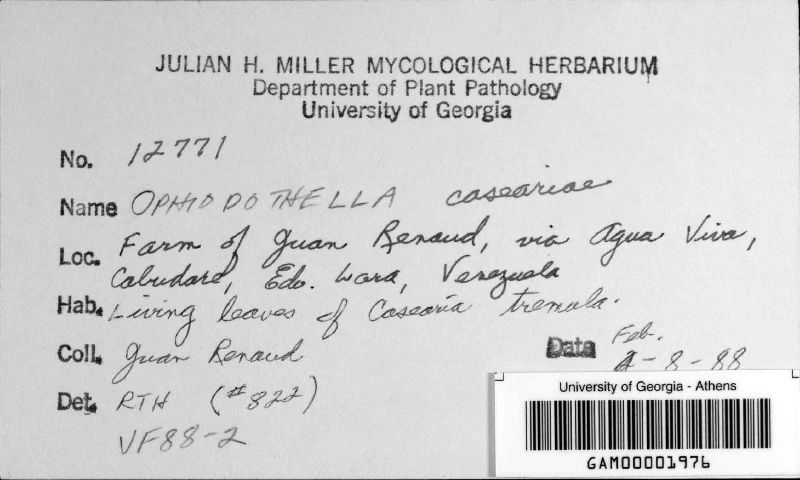 JULIAN H. MILLER MYCOLOGICAL HERBARIUM
Department of Plant Pathology
University of Georgia
No. 12771
Name OPHIODOTHELLA caseariae
Loc. Farm of Juan Renaud, via Agua Viva,
Cabudare, Edo. Lara, Venezuela
Hab. Living leaves of Casearia tremula.
Coll. Juan Renaud
Date Feb. 2-8-88
Det. RTH (#822)
VF88-2
University of Georgia - Athens
GAM00001976